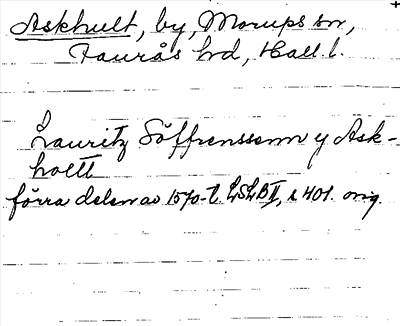 Askhult, by, Morups sn,
Faurås hd, Hall. l.
Lauritz Söffrenssenn y Ask-
holtt
förra delen av 1570-t. LSLB II, s 401. orig.